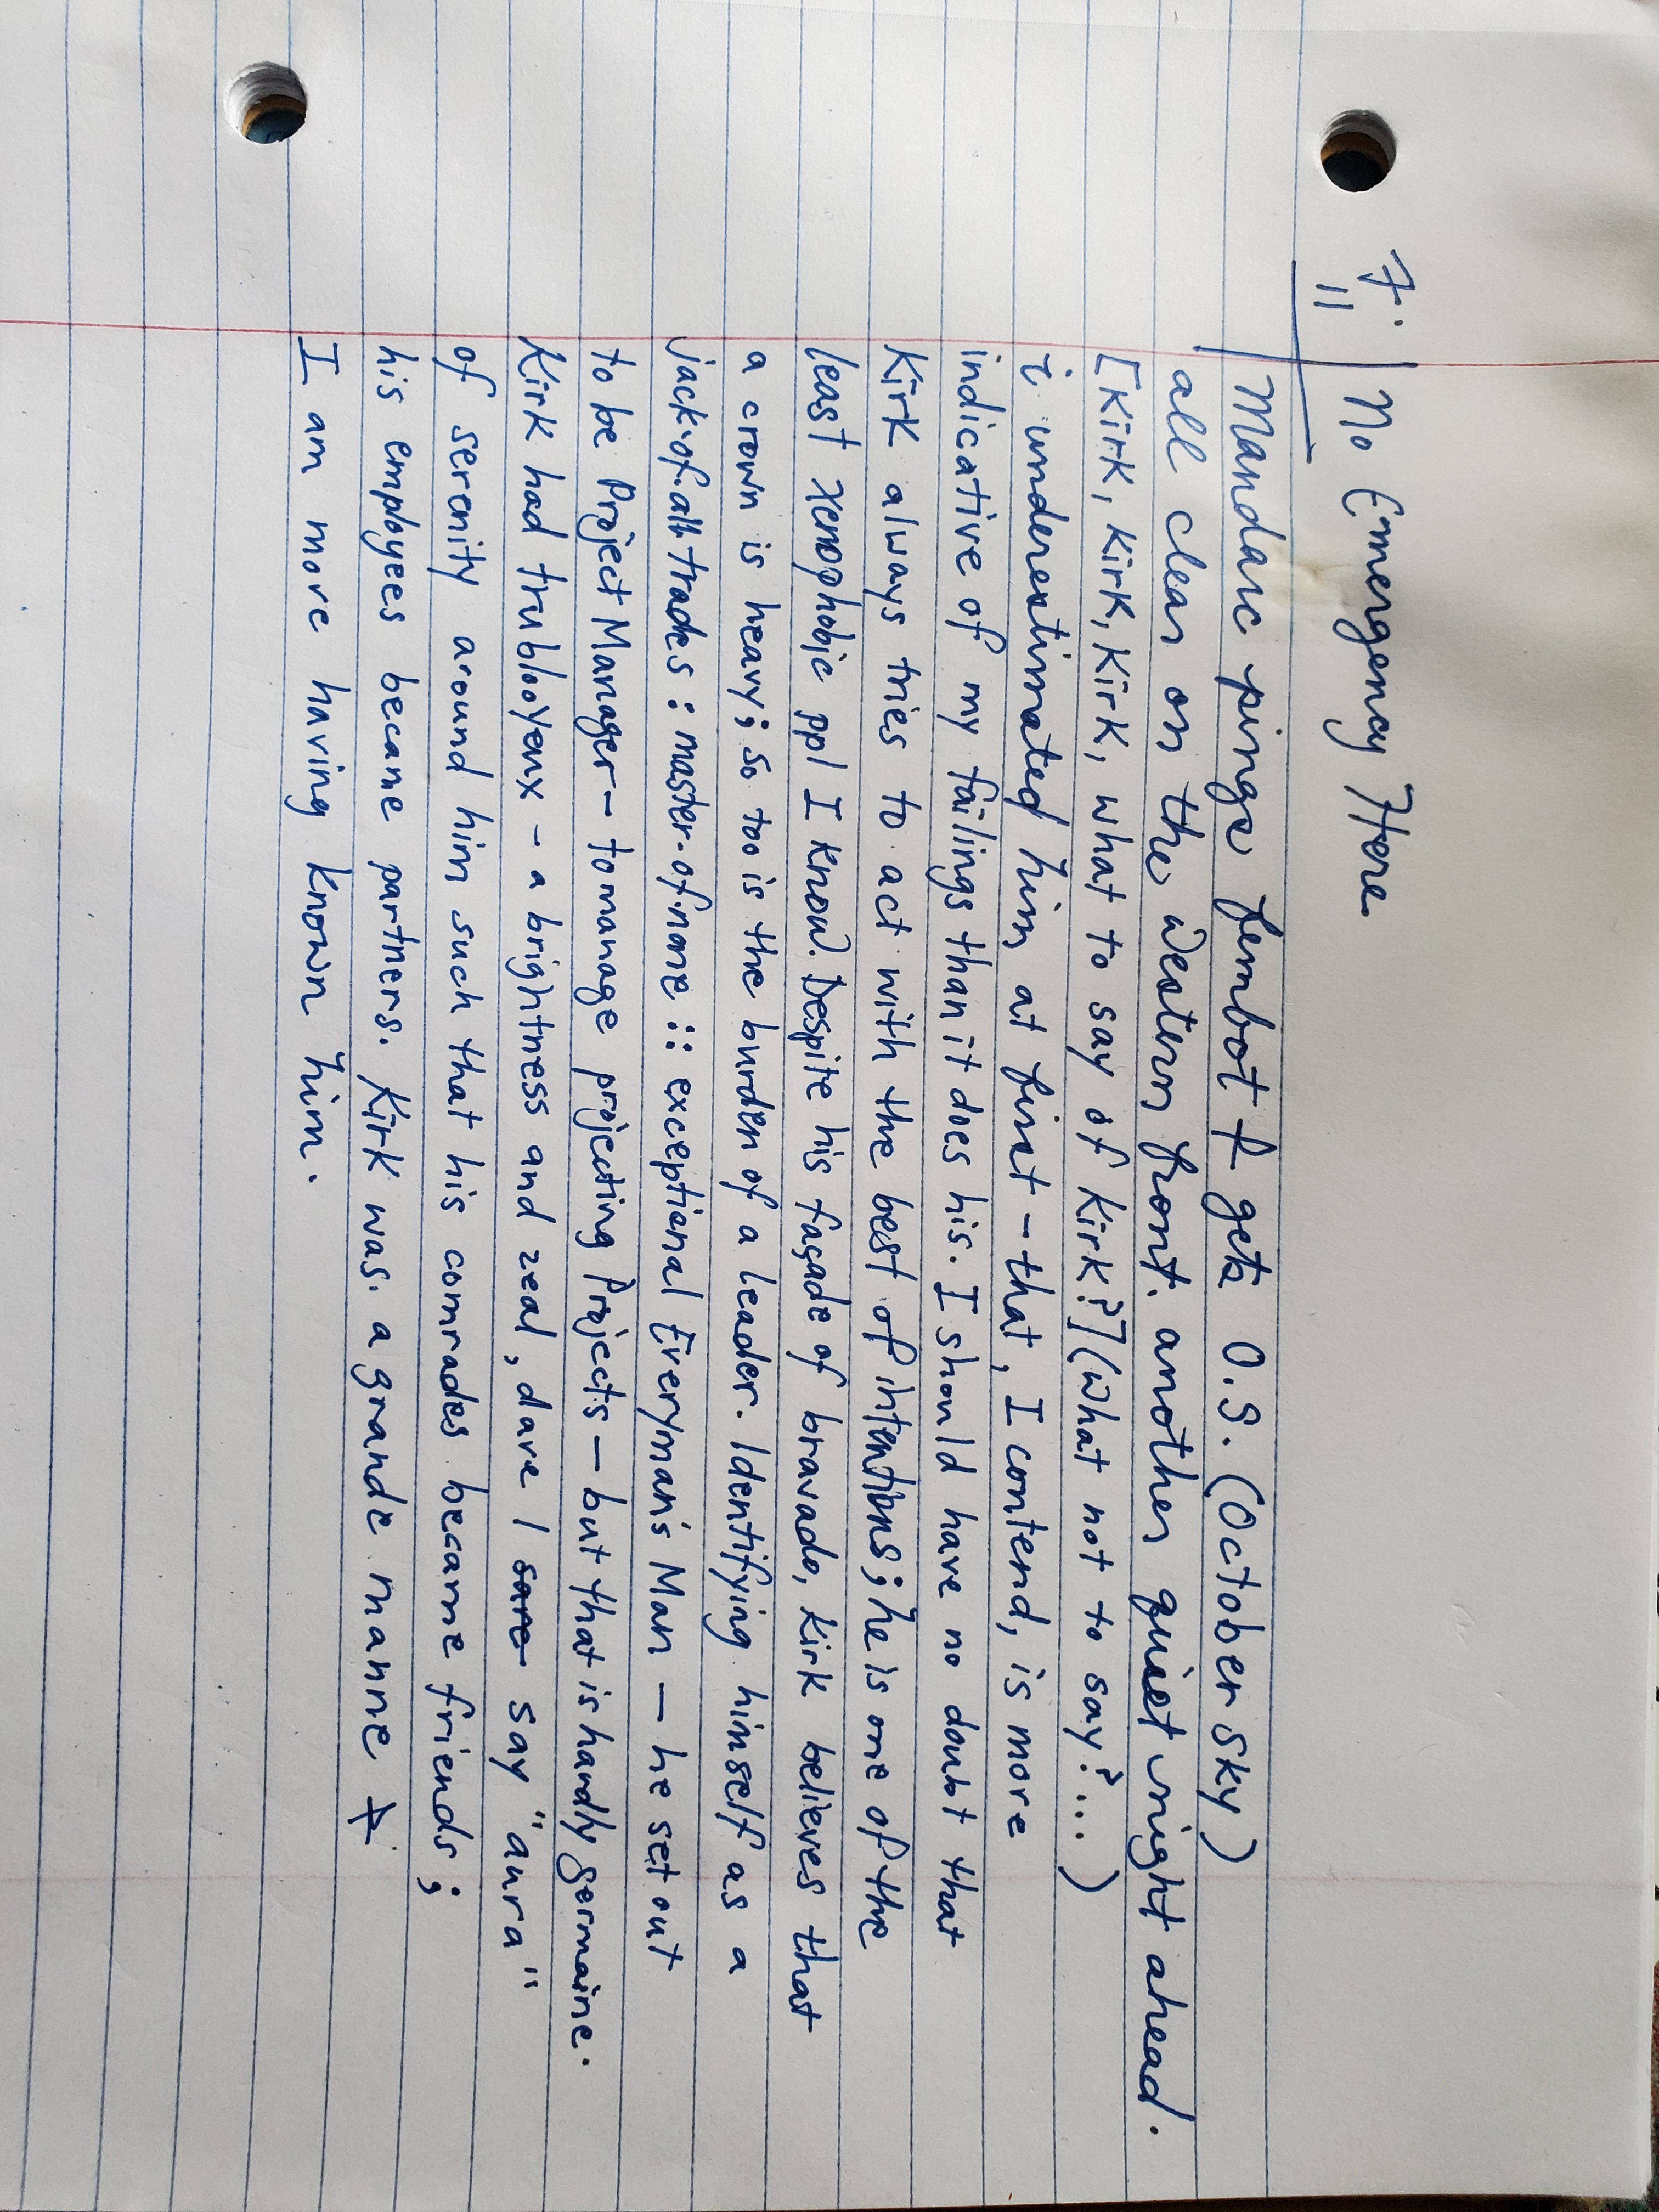 7. No Emergency Here
Mandarc pings fembot & gets O.S. (October sky)
all clear on the western front. another quiet night ahead.
[Kirk, Kirk, Kirk, what to say of Kirk?] (What not to say?...)
i underestimated him at first -- that, I contend, is more
indicative of my failings than it does his. I should have no doubt that
Kirk always tries to act with the best of intentions; he is one of the
least xenophobic ppl I know. Despite his façade of bravado, Kirk believes that
a crown is heavy; so too is the burden of a leader. Identifying himself as a
jack-of-all-trades : master-of-none :: exceptional Everyman's Man — he set out
to be Project Manager -- to manage projecting Projects — but that is hardly germaine.
Kirk had trublooyeux - a brightness and zeal, dare I sare say "aura"
of serenity around him such that his comrades became friends;
his employees became partners. Kirk was. a grande manne &
I am more having known him.